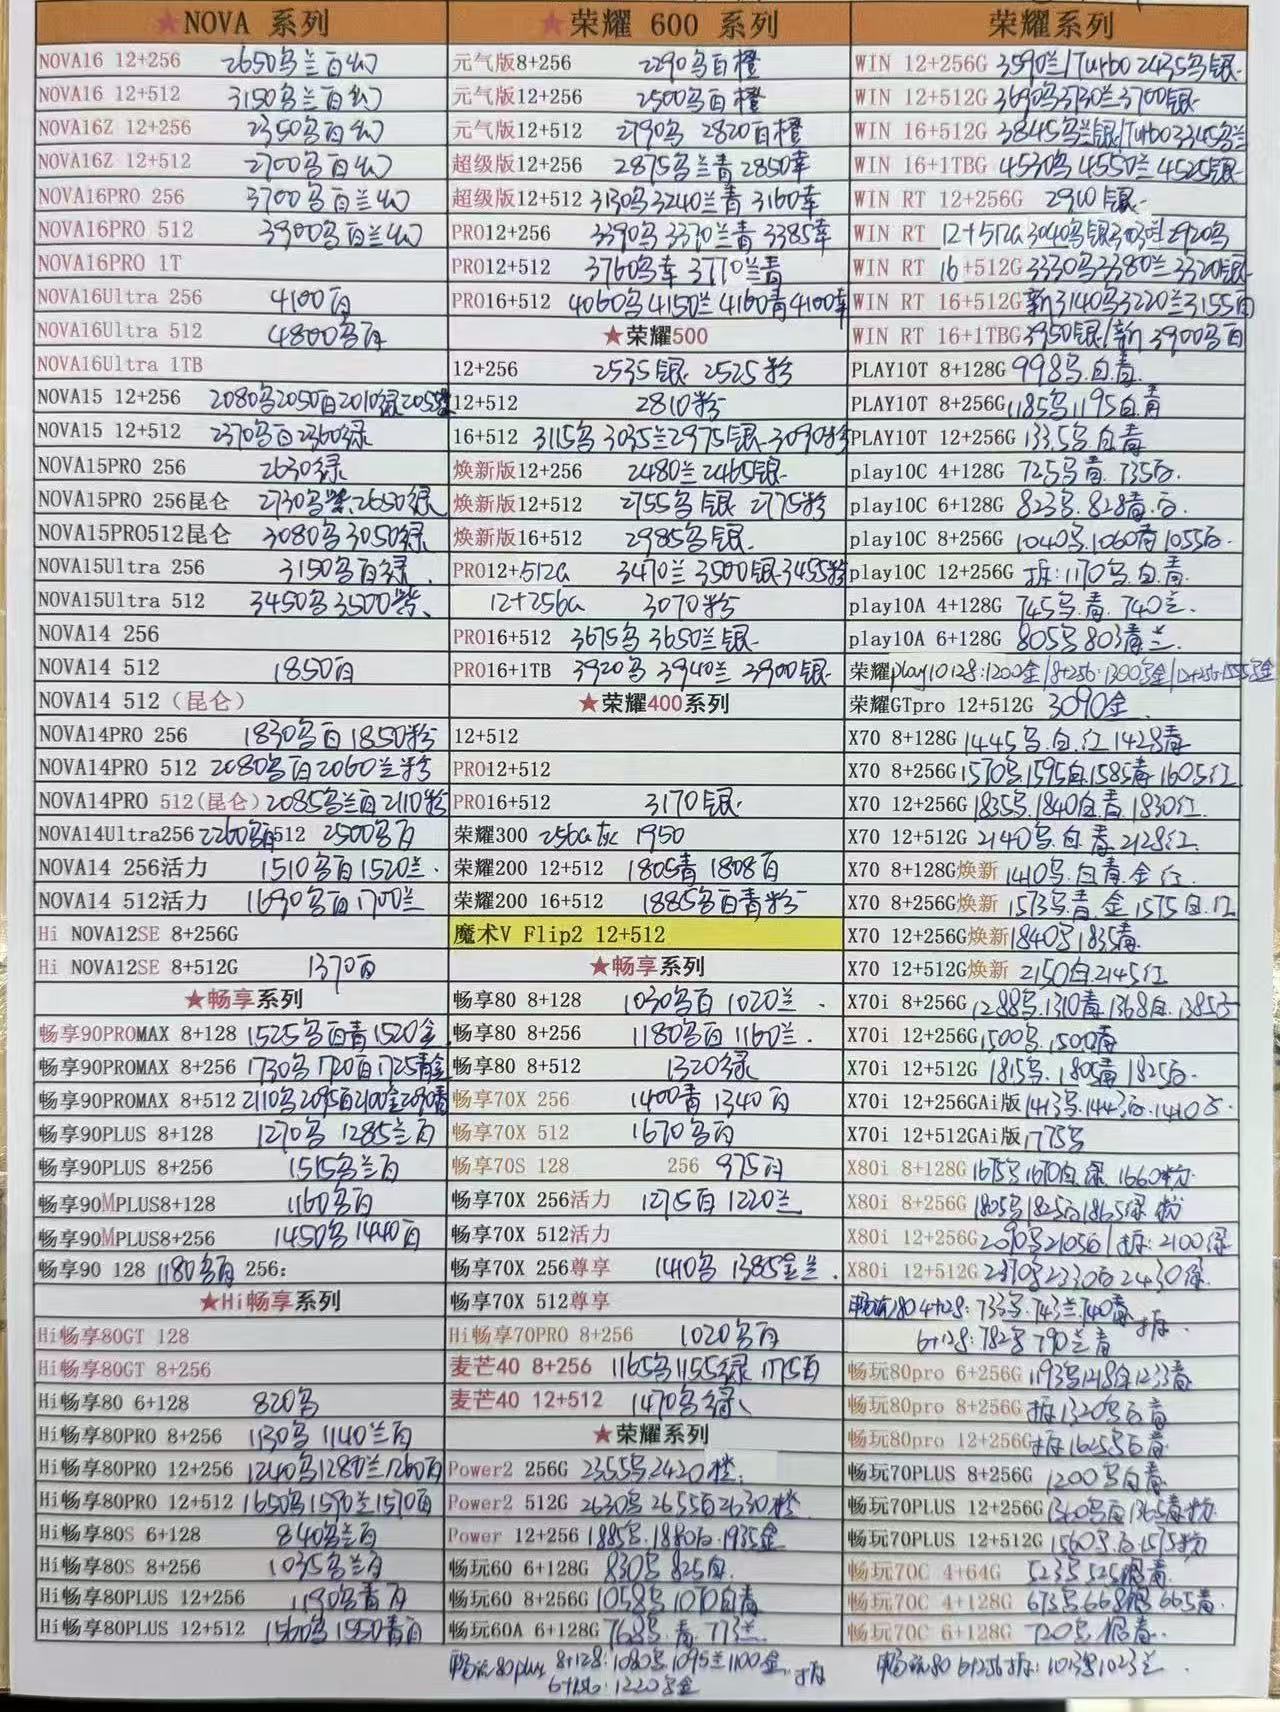 ★NOVA 系列
NOVA16 12+256 2650乌兰百幻
NOVA16 12+512 3150乌兰百幻
NOVA16Z 12+256 2350乌百幻
NOVA16Z 12+512 2700乌百幻
NOVA16PRO 256 3700乌百兰幻
NOVA16PRO 512 3900乌百兰幻
NOVA16PRO 1T
NOVA16Ultra 256 4100百
NOVA16Ultra 512 4800乌百
NOVA16Ultra 1TB
NOVA15 12+256 2080乌2050百2010绿2055紫
NOVA15 12+512 2370乌百2360绿
NOVA15PRO 256 2630绿
NOVA15PRO 256昆仑 2730乌紫.2650绿
NOVA15PRO512昆仑 3080乌3050绿
NOVA15Ultra 256 3150乌百绿.
NOVA15Ultra 512 3450乌3500紫、
NOVA14 256
NOVA14 512 1850百
NOVA14 512（昆仑）
NOVA14PRO 256 1830乌百1850粉
NOVA14PRO 512 2080乌百2060兰粉
NOVA14PRO 512(昆仑) 2085乌兰百2110粉
NOVA14Ultra256 2260乌百512 2500乌百
NOVA14 256活力 1510乌百1520兰.
NOVA14 512活力 1690乌百1700兰
Hi NOVA12SE 8+256G
Hi NOVA12SE 8+512G 1370百
★畅享系列
畅享90PROMAX 8+128 1525乌百青1520金
畅享90PROMAX 8+256 1730乌1720百1725青金
畅享90PROMAX 8+512 2110乌2095百2100金2090青
畅享90PLUS 8+128 1270乌 1285兰百
畅享90PLUS 8+256 1515乌兰百
畅享90MPLUS8+128 1160乌百
畅享90MPLUS8+256 1450乌1440百
畅享90 128 1180乌百 256:
★Hi畅享系列
Hi畅享80GT 128
Hi畅享80GT 8+256
Hi畅享80 6+128 820乌
Hi畅享80PRO 8+256 1130乌 1140兰百
Hi畅享80PRO 12+256 1240乌1280兰1260百
Hi畅享80PRO 12+512 1650乌1590兰1570百
Hi畅享80S 6+128 840乌兰百
Hi畅享80S 8+256 1035乌兰百
Hi畅享80PLUS 12+256 1190乌青百
Hi畅享80PLUS 12+512 1560乌1550青百
★荣耀 600 系列
元气版8+256 2290乌百橙
元气版12+256 2500乌百橙
元气版12+512 2790乌 2820百橙
超级版12+256 2875乌兰青2850幸
超级版12+512 3130乌3240兰青 3160幸
PRO12+256 3390乌 3370兰青 3385幸
PRO12+512 3760乌幸 3770兰青
PRO16+512 4060乌4150兰4160青4100幸
★荣耀500
12+256 2535银. 2525粉
12+512 2810粉
16+512 3115乌 3035兰2975银.3090粉
焕新版12+256 2480兰2465银.
焕新版12+512 2755乌银 2775粉
焕新版16+512 2985乌银.
PRO12+512G 3470兰 3500银.3455粉
12+256G 3070粉
PRO16+512 3675乌 3650兰银.
PRO16+1TB 3920乌 3940兰 3900银.
★荣耀400系列
12+512
PRO12+512
PRO16+512 3170银.
荣耀300 256G灰 1950
荣耀200 12+512 1805青 1808百
荣耀200 16+512 1885乌百青粉
魔术V Flip2 12+512
★畅享系列
畅享80 8+128 1030乌百 1020兰 .
畅享80 8+256 1180乌百 1160兰.
畅享80 8+512 1320绿
畅享70X 256 1400青 1340百
畅享70X 512 1670乌百
畅享70S 128 256 975百
畅享70X 256活力 1275百 1220兰
畅享70X 512活力
畅享70X 256尊享 1410乌 1385金兰.
畅享70X 512尊享
Hi畅享70PRO 8+256 1020乌百
麦芒40 8+256 1165乌1155绿 1175百
麦芒40 12+512 1470乌绿、
★荣耀系列
Power2 256G 2355乌2420橙.
Power2 512G 2630乌2655百2630橙
Power 12+256 1885乌.1880白.1935金
畅玩60 6+128G 830乌 825白.
畅玩60 8+256G 1058乌1070白青
畅玩60A 6+128G 768乌.青.773兰.
畅玩80plus 8+128:1080乌.1095兰1100金. 拆
6+256:1220乌金
荣耀系列
WIN 12+256G 3590兰/Turbo 2435乌银.
WIN 12+512G 3690乌3730兰3700银.
WIN 16+512G 3845乌兰银/Turbo3345乌兰
WIN 16+1TBG 4530乌4550兰4525银.
WIN RT 12+256G 2910银.
WIN RT 16+512G 3330乌3380兰3320银
WIN RT 16+512G新3140乌3220兰3155白
WIN RT 16+1TBG3950银/新 3900乌百
PLAY10T 8+128G 998乌.白青.
PLAY10T 8+256G 1185乌1195白青
PLAY10T 12+256G 1335乌.白青
play10C 4+128G 725乌青.735白.
play10C 6+128G 823乌.828青.白.
play10C 8+256G 1040乌.1060青1055白.
play10C 12+256G 拆:1170乌.白.青.
play10A 4+128G 745乌.青.740兰.
play10A 6+128G 805乌803青兰.
荣耀play10128:1200金/8+256:1390乌金/12+256:1555乌金
荣耀GTpro 12+512G 3090金.
X70 8+128G 1445乌.白.红1428青
X70 8+256G 1570乌1595白1585青1605红.
X70 12+256G 1835乌.1840白.青1830红.
X70 12+512G 2140乌.白.青.2128红.
X70 8+128G焕新 1410乌.白青.金红.
X70 8+256G焕新 1573乌.青.金1575白.红
X70 12+256G焕新1840乌1835青.
X70 12+512G焕新 2150白2145红
X70i 12+256G 1500乌.1500青
X70i 12+512G 1815乌.1805青 1825白.
X70i 12+512GAi版1775乌
X80i 8+128G 1675乌1670白.绿.1660粉.
X80i 8+256G 1805乌1825白1865绿.粉
X80i 12+256G2090乌2105白/拆:2100绿
X80i 12+512G 2370乌2330白2430绿.
畅玩80 4+128:733乌.743兰.740青 拆.
6+128:782乌790兰青
畅玩80pro 6+256G 1193乌1218白1233青
畅玩80pro 8+256G 拆1320乌白青
畅玩80pro 12+256G拆1625乌白青
畅玩70PLUS 8+256G 1200乌白青.
畅玩70PLUS 12+256G1360乌百1365青粉.
畅玩70PLUS 12+512G 1560乌.白1575粉
畅玩70C 4+64G 523乌525银青.
畅玩70C 4+128G 673乌668银665青.
畅玩70C 6+128G 720乌.银青.
畅玩80 6+256拆:1013乌1023兰.